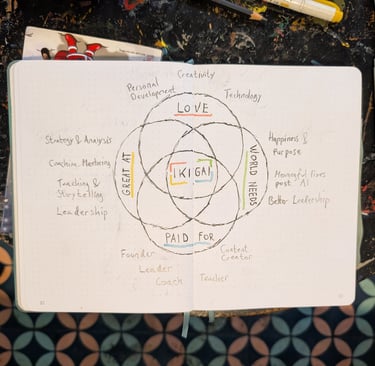 Creativity
Personal
Development
Technology
LOVE
Strategy & Analysis
Coaching, Mentoring
Teaching &
Storytelling
Leadership
GREAT AT
IKIGAI
WORLD NEEDS
Happiness &
Purpose
Meaningful lives
post AI
Better Leadership
PAID FOR
Founder
Leader
Coach
Teacher
Content
Creator